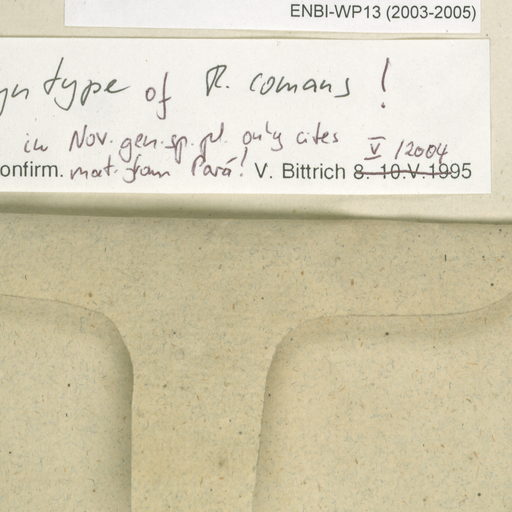 ENBI-WP13 (2003-2005)
yn type of R. comans !
in Nov. gen. sp. pl. only cites V /2004
onfirm. mat. from Pará! V. Bittrich 8. 10.V.1995